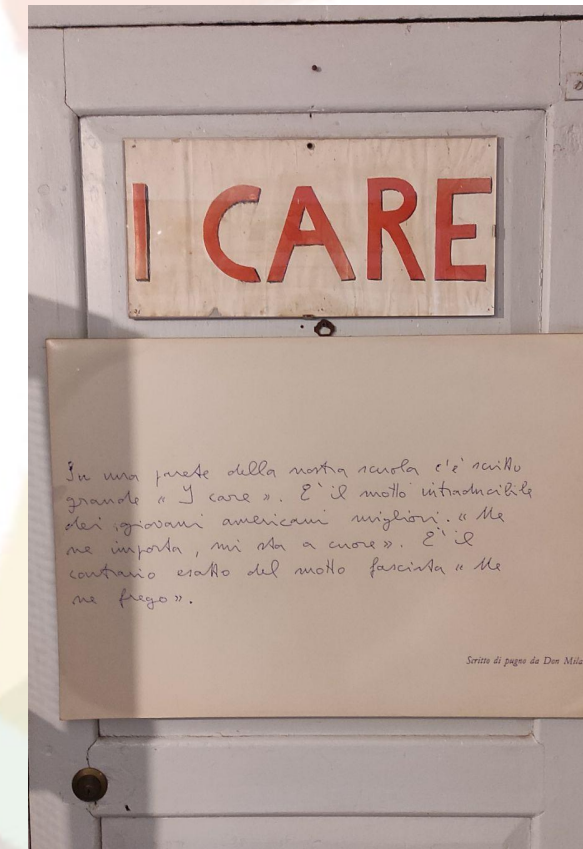 I CARE
In una parete della nostra scuola c'è scritto
grande « I care ». E' il motto intraducibile
dei giovani americani migliori. « Me
ne importa, mi sta a cuore ». E' il
contrario esatto del motto fascista « Me
ne frego ».
Scritto di pugno da Don Mila